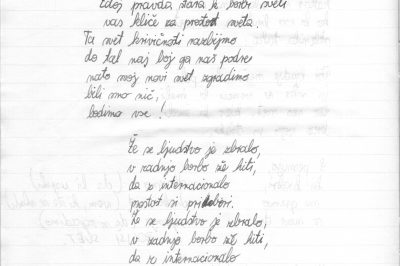 zdaj pravda stara k borbi sveti
vas kliče za prostost sveta
Ta svet krivičnosti razbijmo
do tal naj boj ga naš podre
nato moj novi svet zgradimo
bili smo nič,
bodimo vse!
Že se ljudstvo je zbralo,
v zadnjo borbo že hiti,
da z internacionalo
prostost si pridobi.
Že se ljudstvo je zbralo,
v zadnjo borbo že hiti,
da z internacionalo